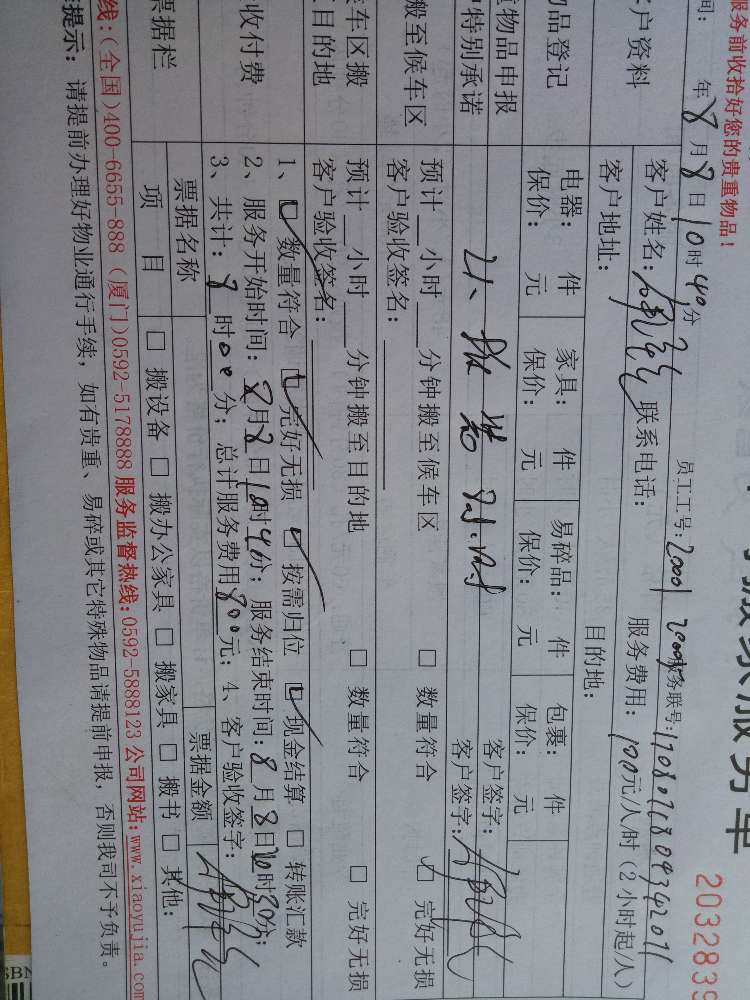 服务单
2032839
服务前收拾好您的贵重物品！
员工工号：20001
务联号：
间： 年8月8日10时40分
服务费用：100元/人/时（2小时起/人）
户资料
客户姓名： 联系电话：
客户地址： 目的地：
品登记
电器： 件 家具： 件 易碎品： 件 包裹： 件
保价： 元 保价： 元 保价： 元 保价： 元
物品申报 客户签字：
特别承诺 客户签字：
搬至候车区
预计__小时__分钟搬至候车区 □ 数量符合 □ 完好无损
客户验收签名：
车区搬
目的地
预计__小时__分钟搬至目的地 □ 数量符合 □ 完好无损
客户验收签名：
收付费
1、☑ 数量符合 ☑ 完好无损 ☑ 按需归位 ☑ 现金结算 □ 转账汇款
2、服务开始时间：8月8日10时40分；服务结束时间：8月8日 时30分；
3、共计：8时00分；总计服务费用800元；4、客户验收签字：
票据栏
票据名称 票据金额
项 目 □ 搬设备 □ 搬办公家具 □ 搬家具 □ 搬书 □ 其他：
线：(全国)400-6655-888 (厦门)0592-5178888 服务监督热线:0592-5888123 公司网站:www.xiaoyujia.com
提示：请提前办理好物业通行手续，如有贵重、易碎或其它特殊物品请提前申报，否则我司不予负责。
SBN